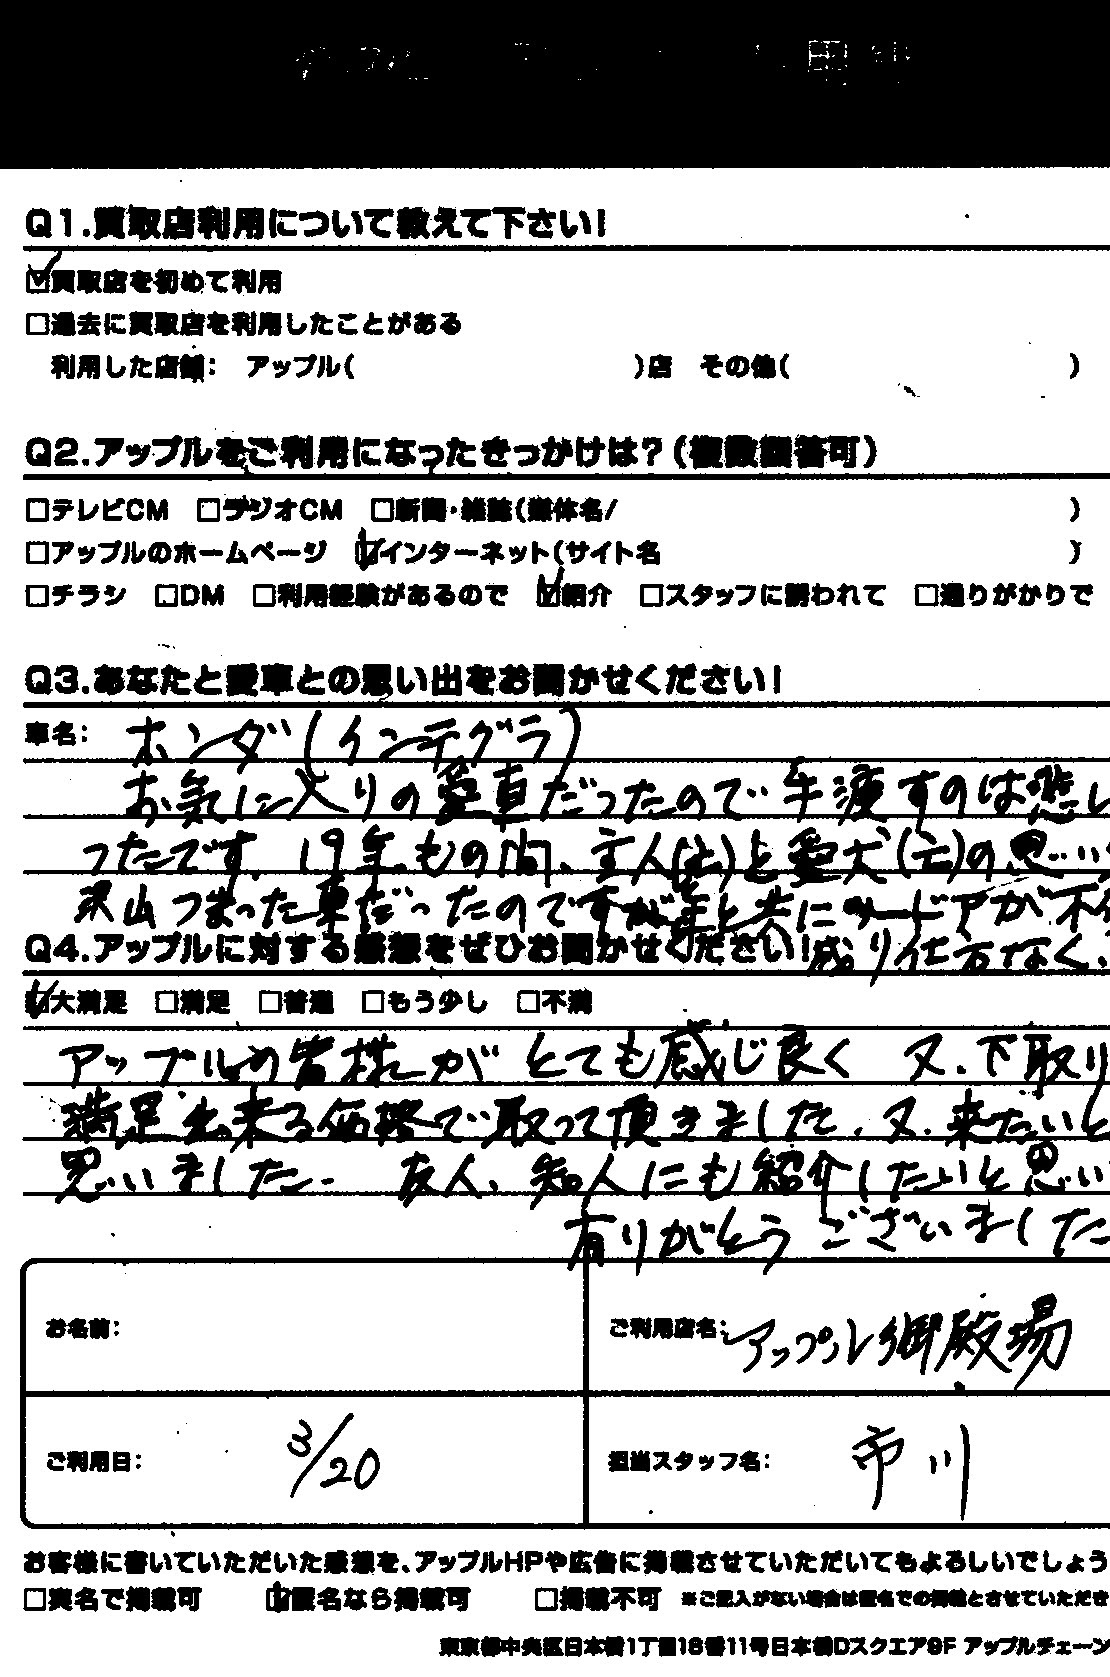 Q1.買取店利用について教えて下さい!
☑買取店を初めて利用
□過去に買取店を利用したことがある
利用した店舗: アップル( )店 その他( )
Q2.アップルをご利用になったきっかけは?(複数回答可)
□テレビCM □ラジオCM □新聞・雑誌(媒体名/ )
□アップルのホームページ ☑インターネット(サイト名 )
□チラシ □DM □利用経験があるので ☑紹介 □スタッフに誘われて □通りがかりで
Q3.あなたと愛車との思い出をお聞かせください!
車名: ホンダ(インテグラ)
お気に入りの愛車だったので手渡すのは悲し
ったです。19年もの間、主人(亡)と愛犬(亡)の思い
沢山つまった車だったのですが年と共に ドアが不
Q4.アップルに対する感想をぜひお聞かせください! 成り仕方なく、
☑大満足 □満足 □普通 □もう少し □不満
アップルの皆様がとても感じ良く 又、下取り
満足出来る価格で取って頂きました。又、来たいと
思いました。 友人、知人にも紹介したいと思い
有りがとうございました
お名前: ご利用店名: アップル御殿場
ご利用日: 3/20 担当スタッフ名: 市川
お客様に書いていただいた感想を、アップルHPや広告に掲載させていただいてもよろしいでしょう
□実名で掲載可 ☑匿名なら掲載可 □掲載不可 ※ご記入がない場合は匿名での掲載とさせていただき
東京都中央区日本橋1丁目16番11号日本橋Dスクエア9F アップルチェーン